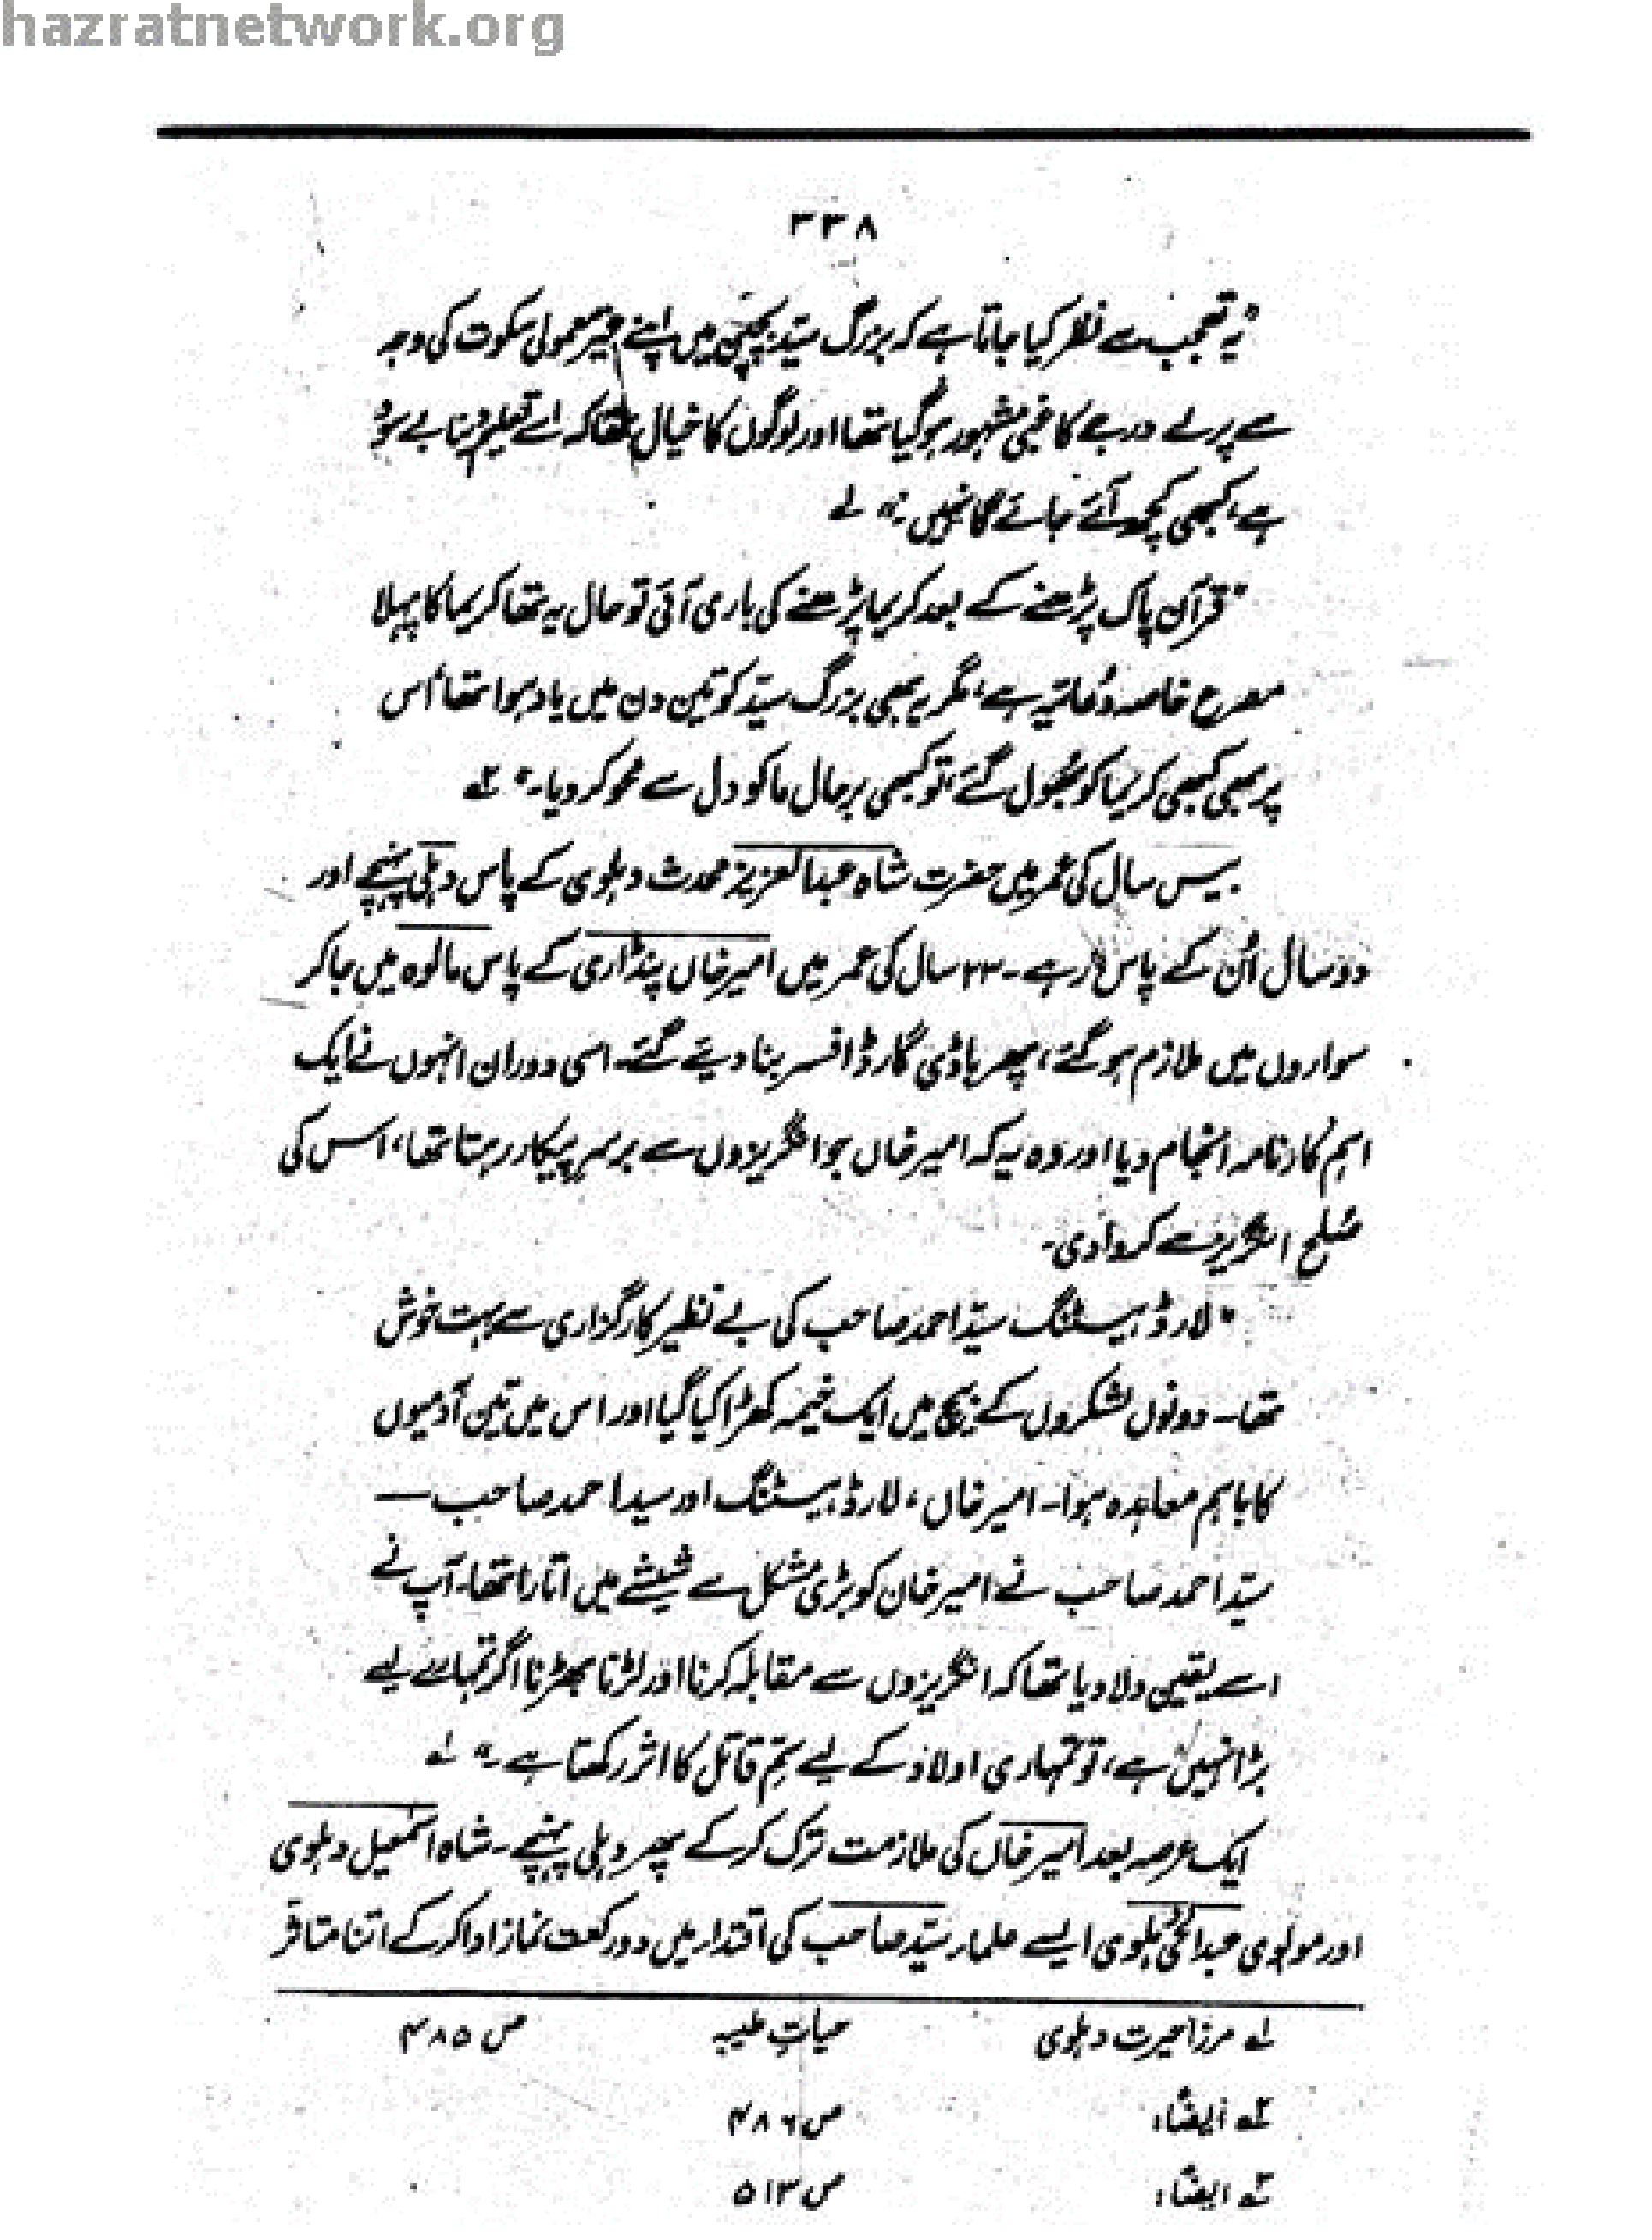 hazratnetwork.org
۳۳۸
"یہ تعجب سے نظر کیا جاتا ہے کہ بزرگ سیّد بچپن میں اپنے غیر معمولی سکوت کی وجہ
سے پرلے درجے کا غبی مشہور ہوگیا تھا اور لوگوں کا خیال تھا کہ اسے تعلیم دینا بے سود
ہے، کبھی کچھ آئے جائے گا نہیں۔" لہ
"قرآن پاک پڑھنے کے بعد کریما پڑھنے کی باری آئی تو حال یہ تھا کریما کا پہلا
مصرع خاصہ دُعائیہ ہے، مگر یہ بھی بزرگ سیّد کو تین دن میں یاد ہوا تھا اُس
پر بھی کبھی کریما کو بھُول گئے، تو کبھی برحال ما کو دل سے محو کر دیا۔" ۲ہ
بیس سال کی عمر میں حضرت شاہ عبدالعزیز محدث دہلوی کے پاس دہلی پہنچے اور
دو سال اُن کے پاس رہے۔ ۲۳ سال کی عمر میں امیر خاں پنڈاری کے پاس مالوہ میں جا کر
سواروں میں ملازم ہوگئے، پھر باڈی گارڈ افسر بنا دیئے گئے۔ اسی دوران انہوں نے ایک
اہم کارنامہ انجام دیا اور وہ یہ کہ امیر خاں جو انگریزوں سے برسرِ پیکار رہتا تھا، اس کی
صُلح انگریز سے کروا دی۔
"لارڈ ہیسٹنگ سیّد احمد صاحب کی بے نظیر کارگزاری سے بہت خوش
تھا۔ دونوں لشکروں کے بیچ میں ایک خیمہ کھڑا کیا گیا اور اس میں تین آدمیوں
کا باہم معاہدہ ہوا۔ امیر خاں، لارڈ ہیسٹنگ اور سید احمد صاحب —
سیّد احمد صاحب نے امیر خان کو بڑی مشکل سے شیشے میں اتارا تھا۔ آپ نے
اسے یقین دلا دیا تھا کہ انگریزوں سے مقابلہ کرنا اور لڑنا بھڑنا اگر تمہارے لیے
بُرا نہیں ہے، تو تمہاری اولاد کے لیے سَمِّ قاتل کا اثر رکھتا ہے۔" ۳ہ
ایک عرصہ بعد امیر خاں کی ملازمت ترک کر کے پھر دہلی پہنچے۔ شاہ اسمٰعیل دہلوی
اور مولوی عبدالحئی دہلوی ایسے علماء سیّد صاحب کی اقتداء میں دو رکعت نماز ادا کر کے اتنا متاثر
لہ مرزا حیرت دہلوی حیاتِ طیبہ ص ۴۸۵
۲ہ ایضاً، ص ۴۸۶
۳ہ ایضاً، ص ۵۱۳